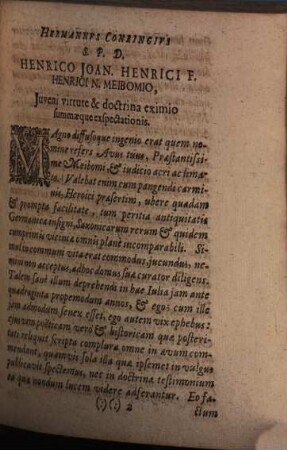 HERMANNVS CONRINGIVS
S. P. D.
HENRICO JOAN. HENRICI F.
HENRICI N. MEIBOMIO,
Juveni virtute & doctrina eximio
summæque exspectationis.
MAgno diffusoque ingenio erat quem no-
mine refers Avus tuus, Præstantissi-
me Meibomi, & judicio acri ac lima-
to. Valebat enim cum pangendi carmi-
nis, Heroici præsertim, ubere quadam
& prompta facilitate, tum peritia antiquitatis
Germanicæ insignis, Saxonicarum rerum & quidem
cumprimis vicinia omnis plane incomparabili. Si-
mul in communi vita erat commodus, jucundus, ne-
mini non acceptus, adhoc domus suæ curator diligens.
Talem sanè illum deprehendi in hac Iulia jam ante
quadraginta propemodum annos, & ego; cum ille
jam admodum senex esset, ego autem vix ephebus:
ejus verò poëticam & historicam quæ posteri-
tati reliquit scripta complura omne in ævum com-
mendent, quamvis sola illa quæ ipsemet in vulgus
publicavit spectentur, nec in doctrinæ testimonium
ea quæ nondum lucem videre adferantur. Eo fa-
(:) (:) 2 ctum